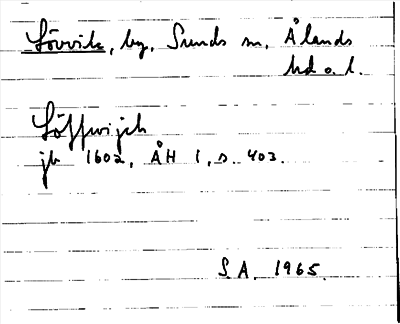 Lövvik, by, Sunds sn, Ålands
hd o. l.
Löffwijck
jb 1602, ÅH 1, s. 403.
S A. 1965.